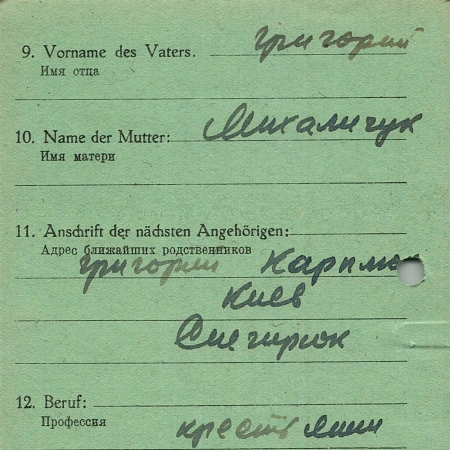 9. Vorname des Vaters. Григорий
Имя отца
10. Name der Mutter: Михаличук
Имя матери
11. Anschrift der nächsten Angehörigen:
Адрес ближайших родственников
Григорий
Киев
Снегирюк
12. Beruf:
Профессия
крестьянин